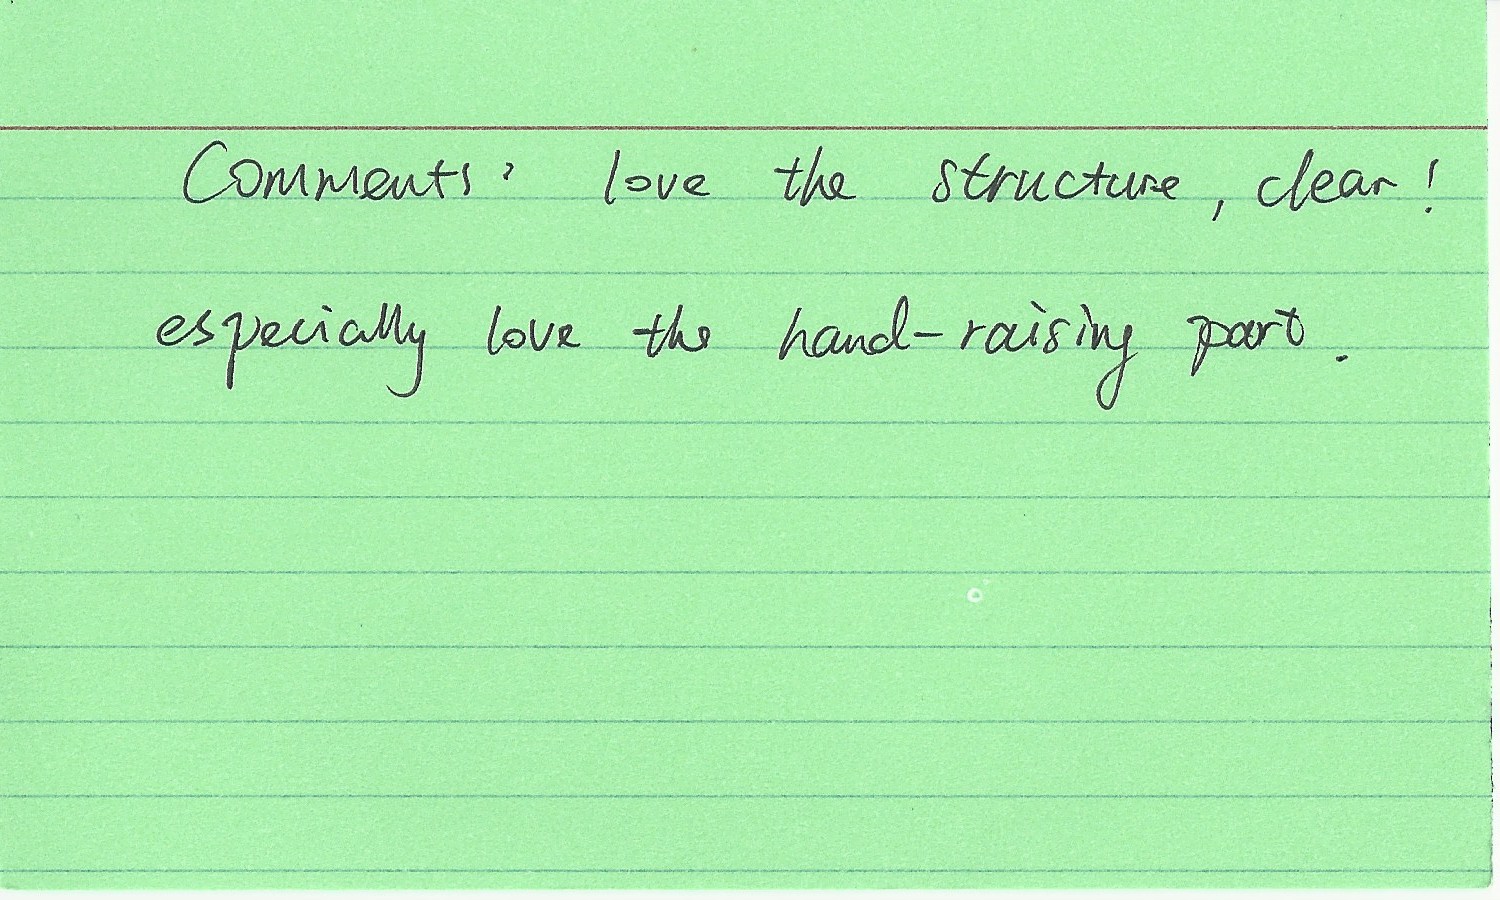 Comments: love the structure, clear!
especially love the hand-raising part.